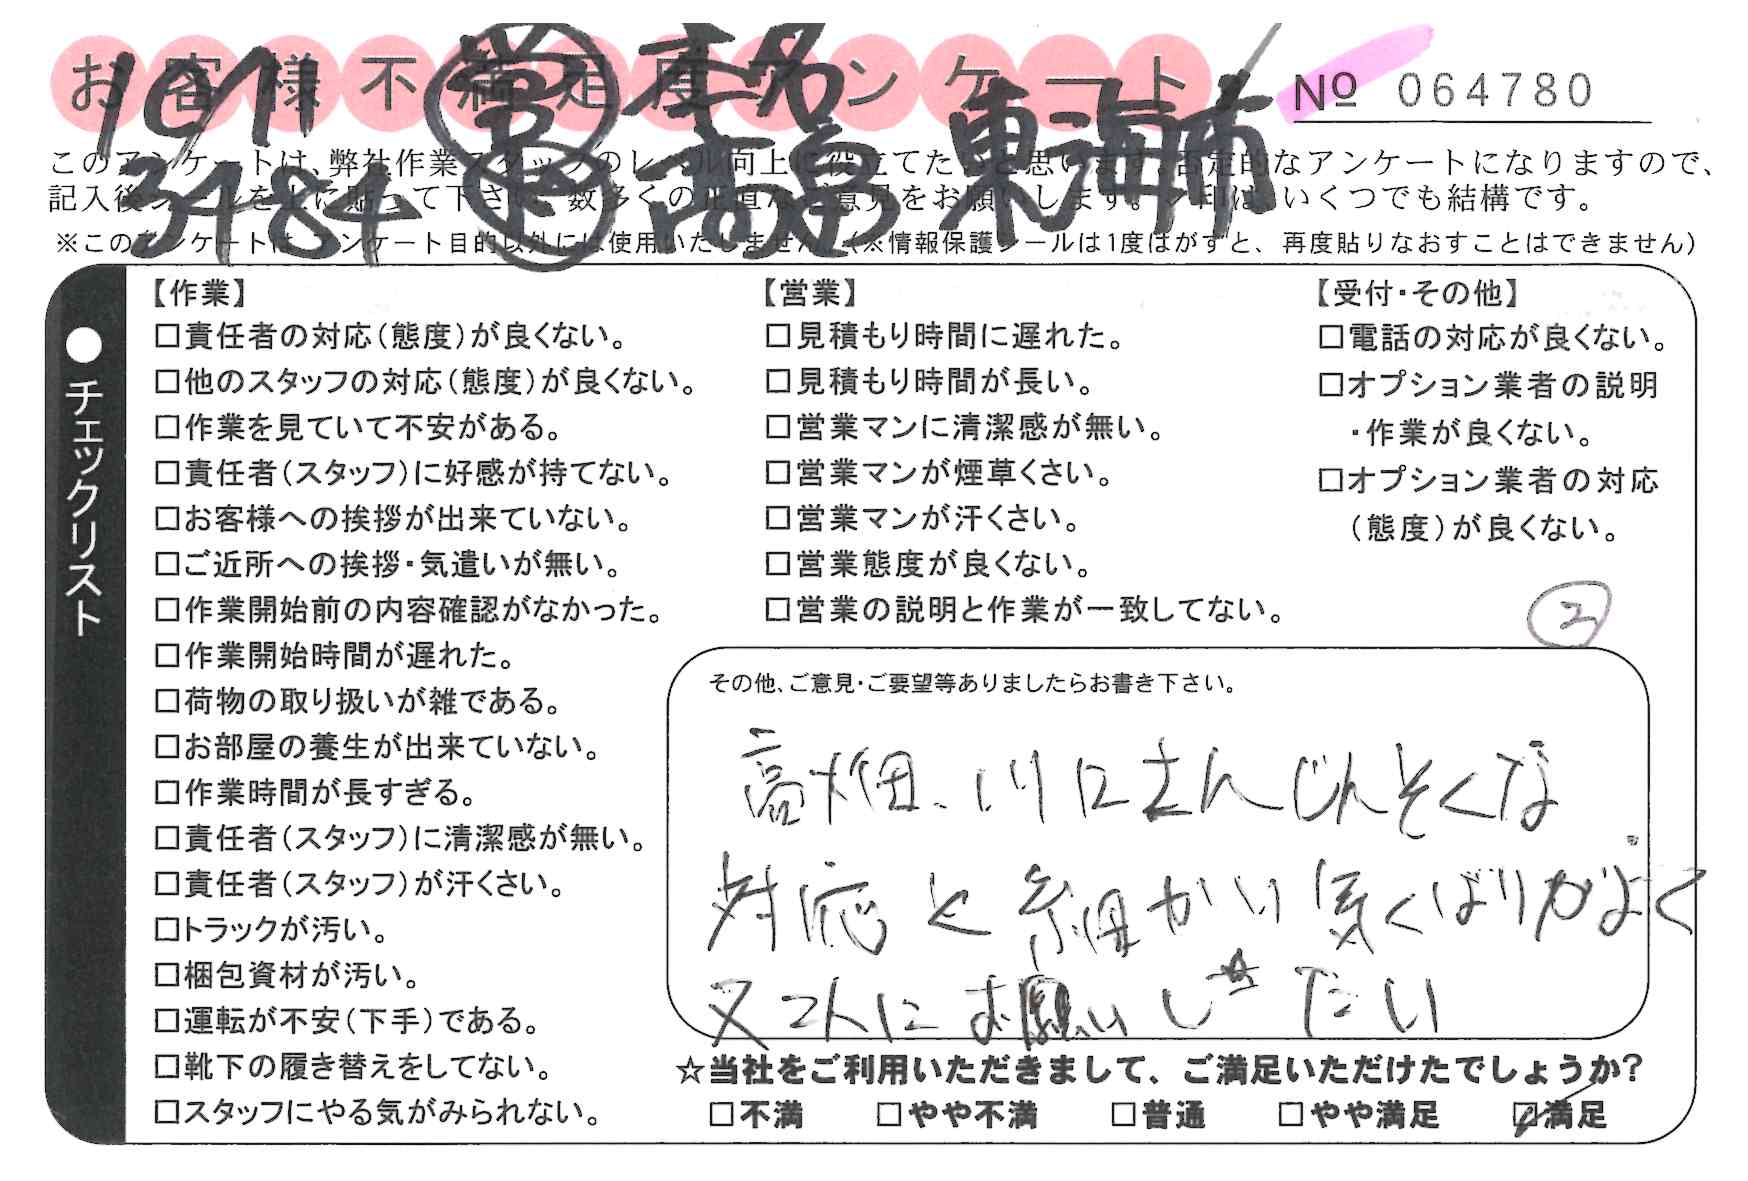 お客様不満足度アンケート
№ 064780
10/11
3484
東海市
このアンケートは、弊社作業スタッフのレベル向上に役立てたいと思います。否定的なアンケートになりますので、
記入後シールを上に貼って下さい。数多くの正直なご意見をお願いします。✓印は、いくつでも結構です。
※このアンケートは、アンケート目的以外には使用いたしません。(※情報保護シールは1度はがすと、再度貼りなおすことはできません)
●チェックリスト
【作業】
□責任者の対応(態度)が良くない。
□他のスタッフの対応(態度)が良くない。
□作業を見ていて不安がある。
□責任者(スタッフ)に好感が持てない。
□お客様への挨拶が出来ていない。
□ご近所への挨拶・気遣いが無い。
□作業開始前の内容確認がなかった。
□作業開始時間が遅れた。
□荷物の取り扱いが雑である。
□お部屋の養生が出来ていない。
□作業時間が長すぎる。
□責任者(スタッフ)に清潔感が無い。
□責任者(スタッフ)が汗くさい。
□トラックが汚い。
□梱包資材が汚い。
□運転が不安(下手)である。
□靴下の履き替えをしてない。
□スタッフにやる気がみられない。
【営業】
□見積もり時間に遅れた。
□見積もり時間が長い。
□営業マンに清潔感が無い。
□営業マンが煙草くさい。
□営業マンが汗くさい。
□営業態度が良くない。
□営業の説明と作業が一致してない。
【受付・その他】
□電話の対応が良くない。
□オプション業者の説明
・作業が良くない。
□オプション業者の対応
(態度)が良くない。
②
その他、ご意見・ご要望等ありましたらお書き下さい。
高畑、川口さんじんそくな
対応と細かい気くばりがよく
又コトにお願いし
たい
☆当社をご利用いただきまして、ご満足いただけたでしょうか?
□不満 □やや不満 □普通 □やや満足 ☑満足